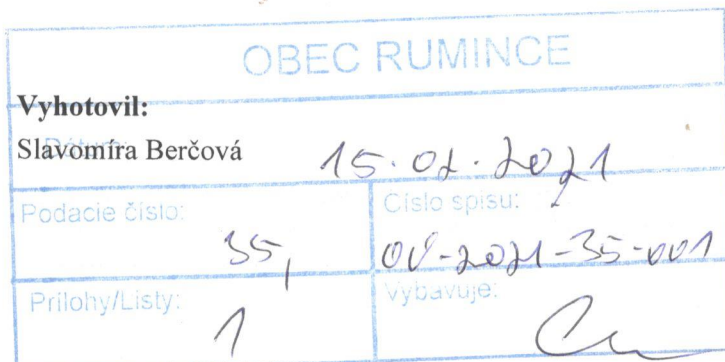 OBEC RUMINCE
Vyhotovil:
Slavomíra Berčová
Dátum: 15.02.2021
Podacie číslo: 35,
Číslo spisu: OU-2021-35-001
Prílohy/Listy: 1
Vybavuje: